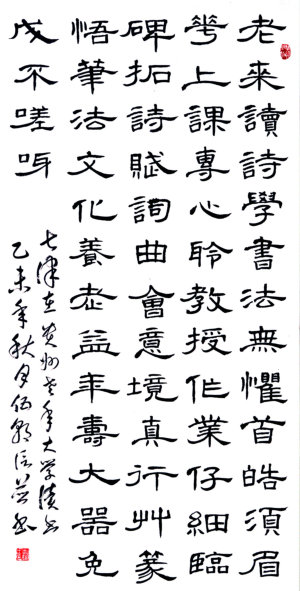 老來讀詩學書法無懼首皓須眉
花上課專心聆教授作業仔細臨
碑拓詩賦詞曲會意境真行艸篆
悟筆法文化養老益年壽大器免
成不嗟呀
七律在贵州老年大学读书
乙未年秋月伍书